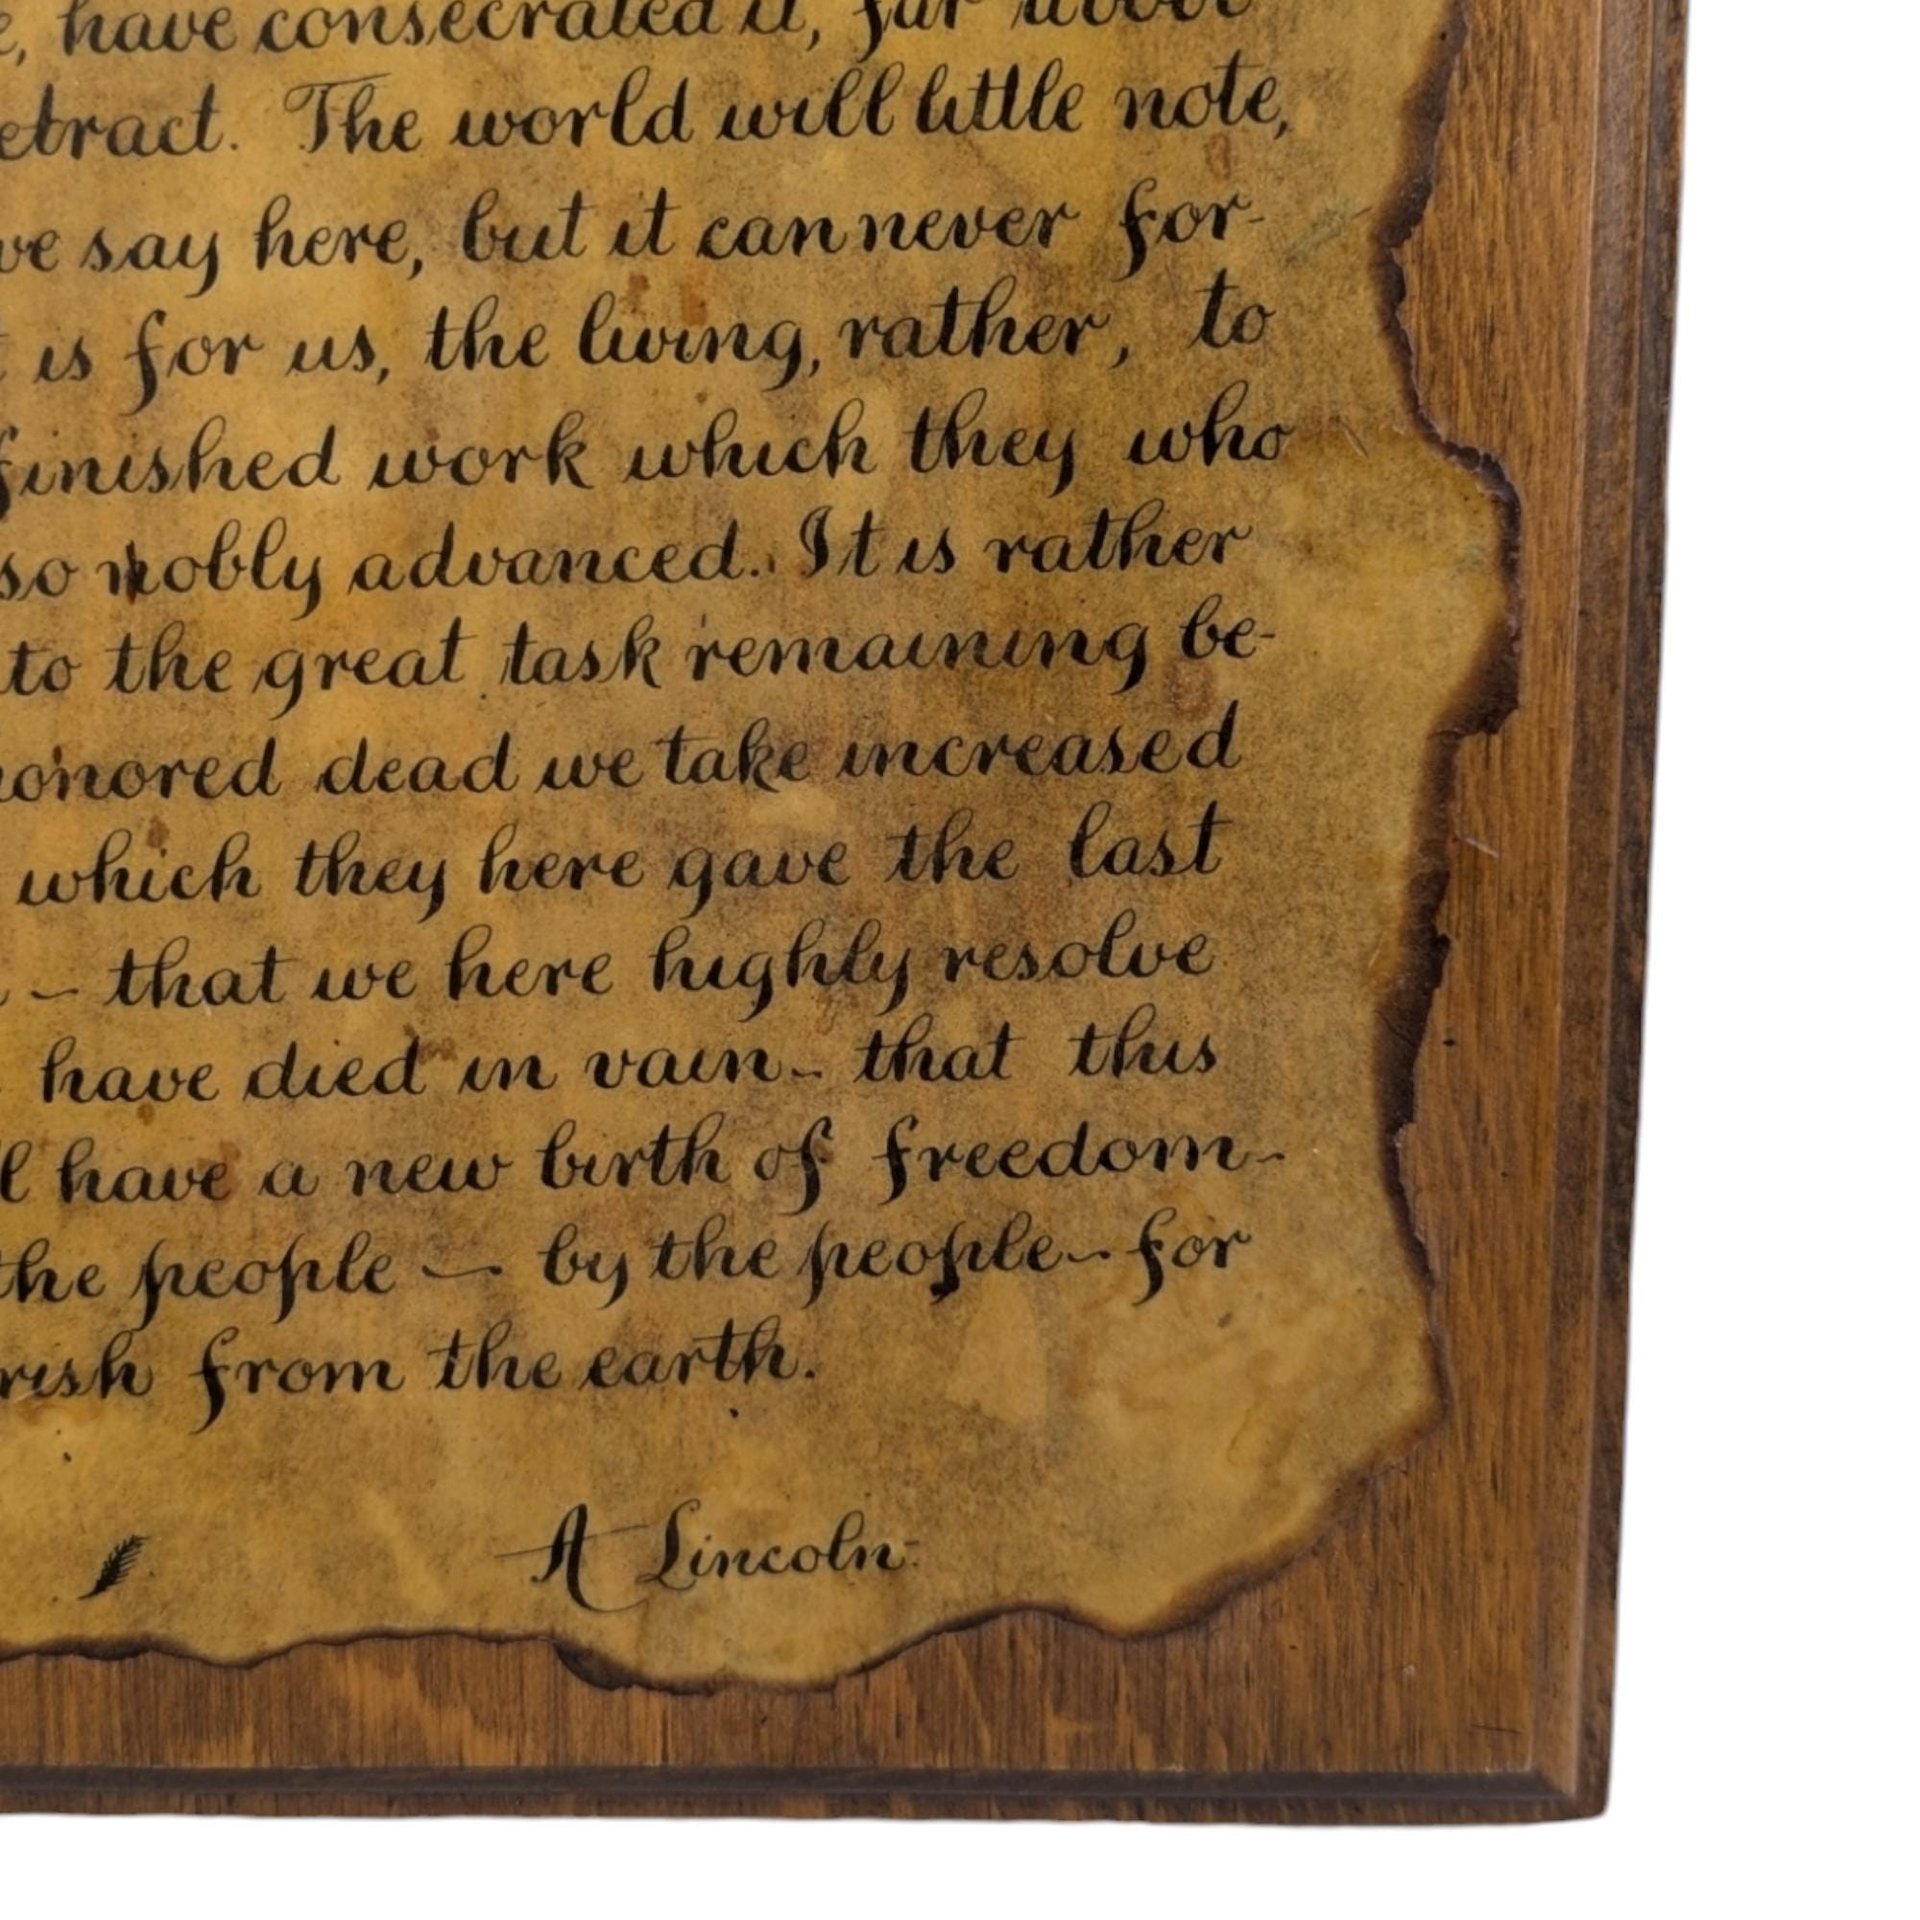 have consecrated it, far above
etract. The world will little note,
we say here, but it can never for-
is for us, the living, rather, to
finished work which they who
so nobly advanced. It is rather
to the great task remaining be-
honored dead we take increased
which they here gave the last
- that we here highly resolve
have died in vain - that this
have a new birth of freedom-
the people - by the people - for
rish from the earth.
A Lincoln.